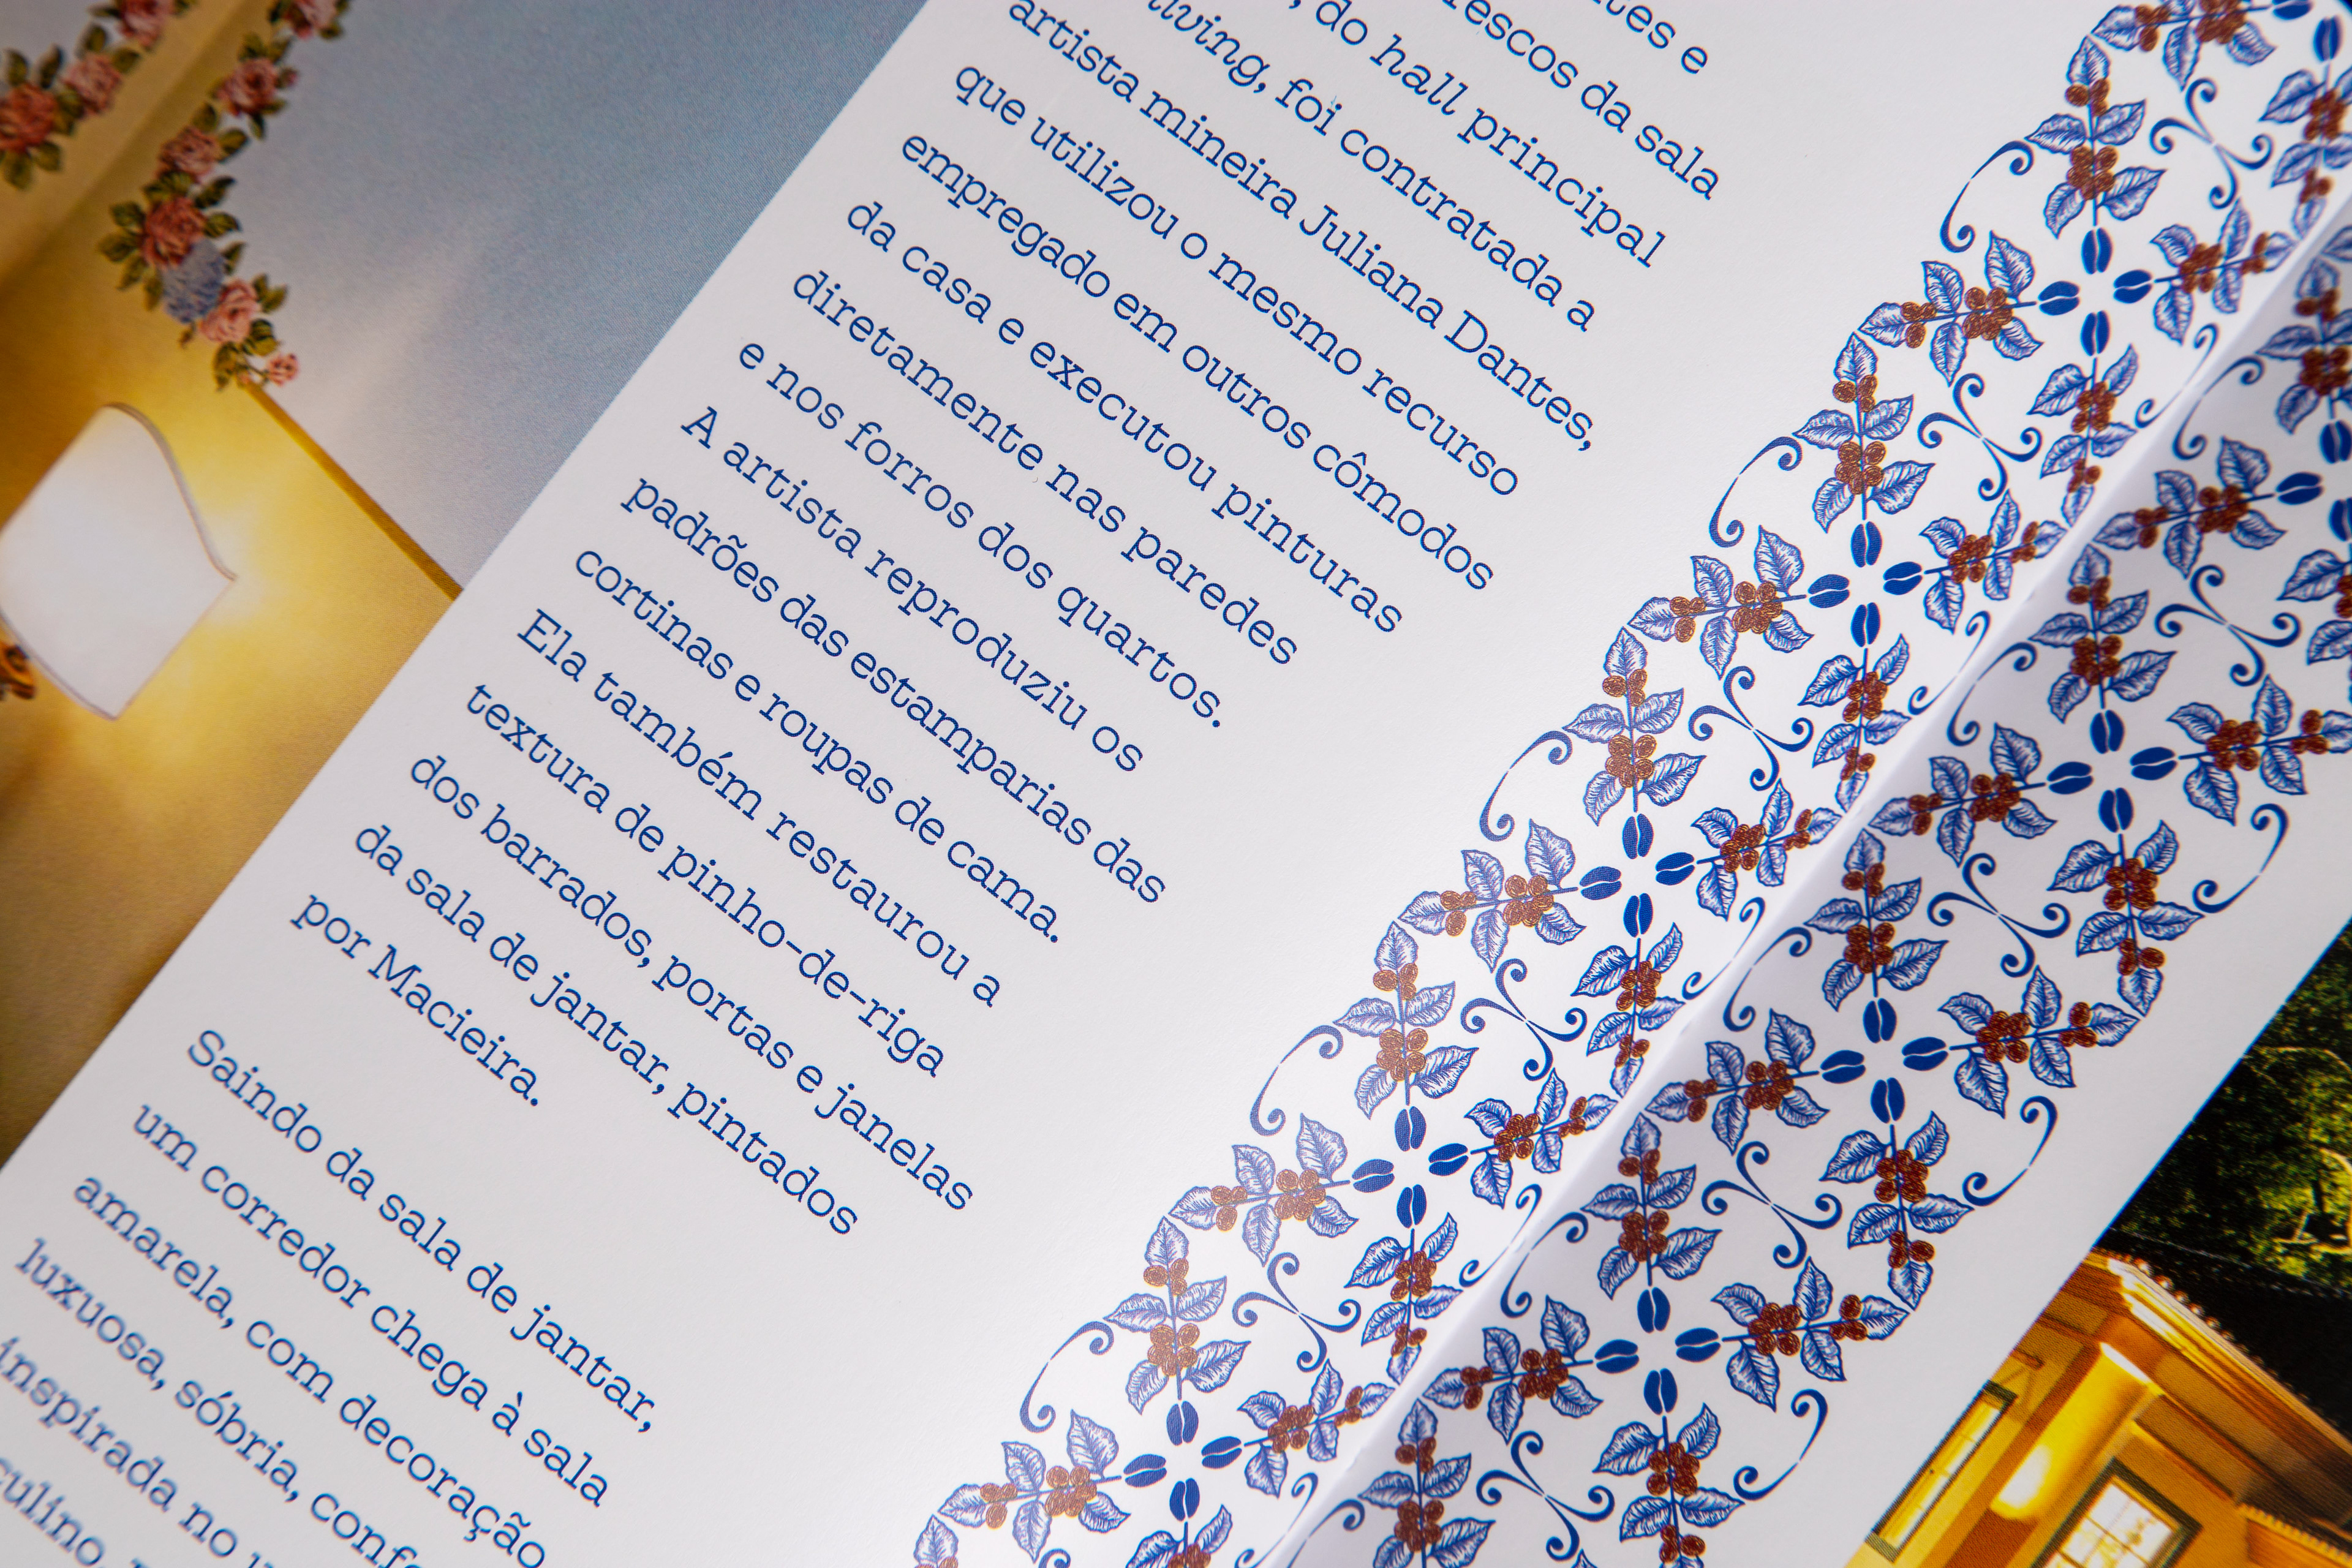 e
escos da sala
, do hall principal
living, foi contratada a
artista mineira Juliana Dantes,
que utilizou o mesmo recurso
empregado em outros cômodos
da casa e executou pinturas
diretamente nas paredes
e nos forros dos quartos.
A artista reproduziu os
padrões das estamparias das
cortinas e roupas de cama.
Ela também restaurou a
textura de pinho-de-riga
dos barrados, portas e janelas
da sala de jantar, pintados
por Macieira.
Saindo da sala de jantar,
um corredor chega à sala
amarela, com decoração
luxuosa, sóbria,
inspirada no